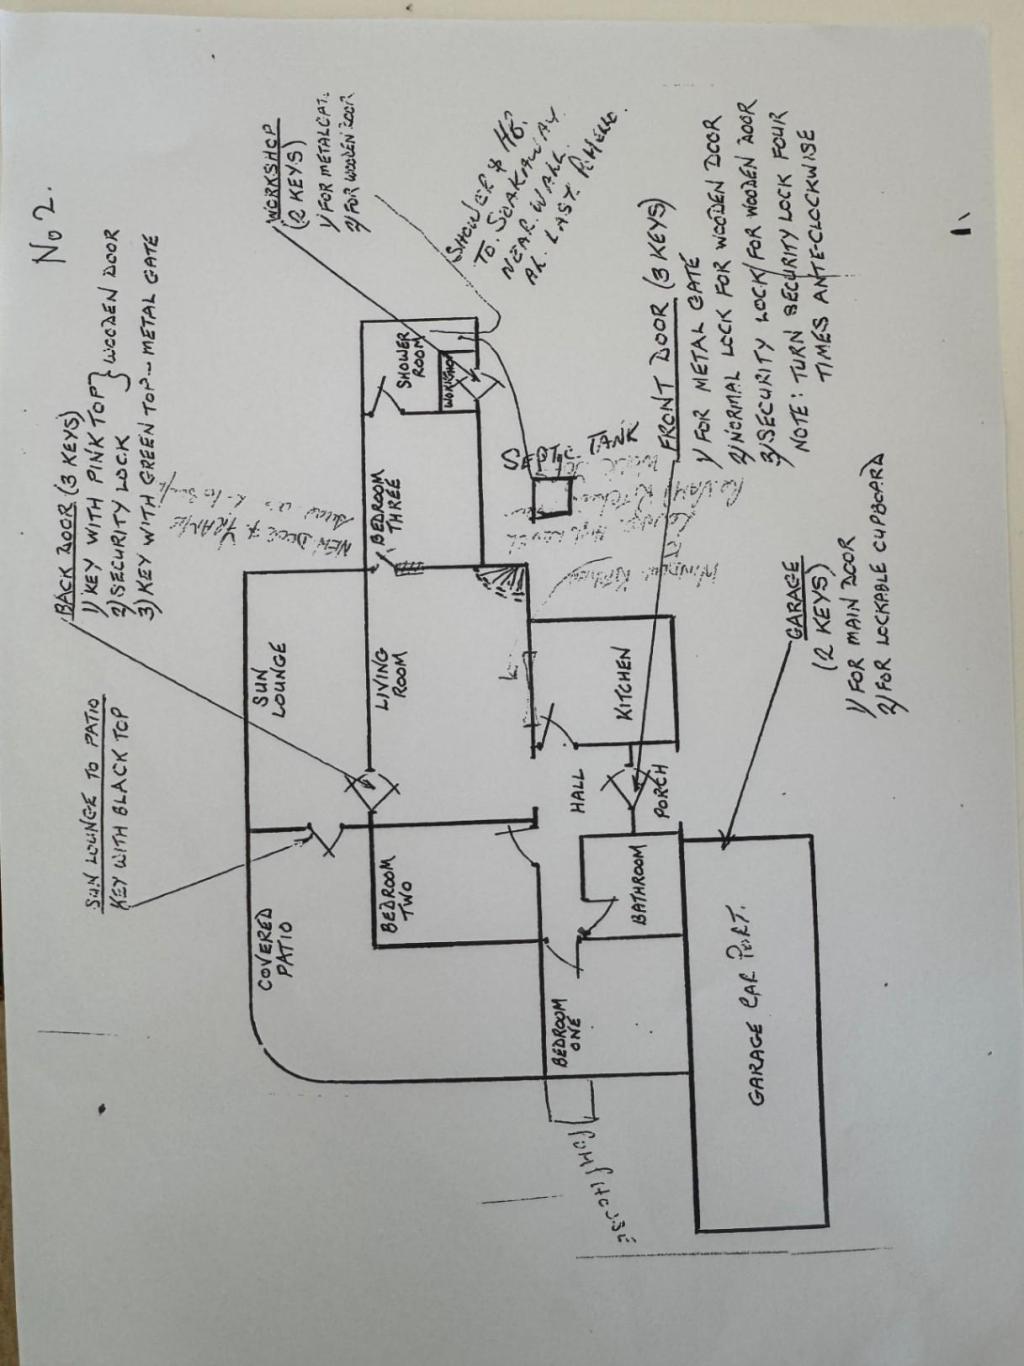 No 2.
BACK DOOR (3 KEYS)
1) KEY WITH PINK TOP
2) SECURITY LOCK
} WOODEN DOOR
3) KEY WITH GREEN TOP - METAL GATE
SUN LOUNGE TO PATIO
KEY WITH BLACK TOP
WORKSHOP
(2 KEYS)
1) FOR METAL GAT.
2) FOR WOODEN DOOR
SHOWER &
TO. SOAKAWAY
NEAR WALL
LAST
NEW DOOR & FRAME
COVERED
PATIO
SUN
LOUNGE
BEDROOM
TWO
LIVING
ROOM
BEDROOM
THREE
SHOWER
ROOM
WORKSHOP
SEPTIC TANK
BEDROOM
ONE
HALL
KITCHEN
BATHROOM
PORCH
GARAGE CAR PORT.
FRONT DOOR (3 KEYS)
1) FOR METAL GATE
2) NORMAL LOCK FOR WOODEN DOOR
3) SECURITY LOCK FOR WOODEN DOOR
NOTE: TURN SECURITY LOCK FOUR
TIMES ANTE-CLOCKWISE
GARAGE
(2 KEYS)
1) FOR MAIN DOOR
2) FOR LOCKABLE CUPBOARD
1.